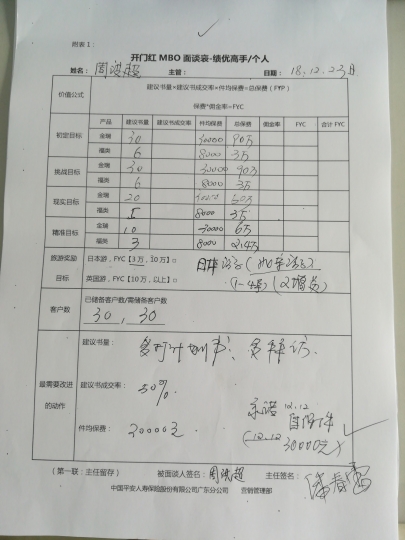 附表1:
开门红 MBO 面谈表-绩优高手/个人
姓名: 周洪超 主管: 日期: 18.12.23日
价值公式 建议书量*建议书成交率*件均保费=总保费(FYP)
保费*佣金率=FYC
产品 建议书量 建议书成交率 件均保费 总保费 佣金率 FYC 合计 FYC
初定目标 金瑞 30 30000 90万
福类 6 8000 3万
挑战目标 金瑞 30 30000 90万
福类 6 8000 3万
现实目标 金瑞 20 60万
福类 5 8000 3万
精准目标 金瑞 10 30000 6万
福类 3 8000 2.4万
旅游奖励目标 日本游,FYC【3万,10万】□ 日本游
英国游,FYC【10万,以上】□
客户数 已储备客户数/需储备客户数
30, 30
最需要改进的动作 建议书量: 多打计划书、多拜访.
建议书成交率: 50%
件均保费: 30000元
承诺 12.12
自保件
(12.12 30000元)
(第一联:主任留存) 被面谈人签名: 周洪超 主任签名:
中国平安人寿保险股份有限公司广东分公司 营销管理部